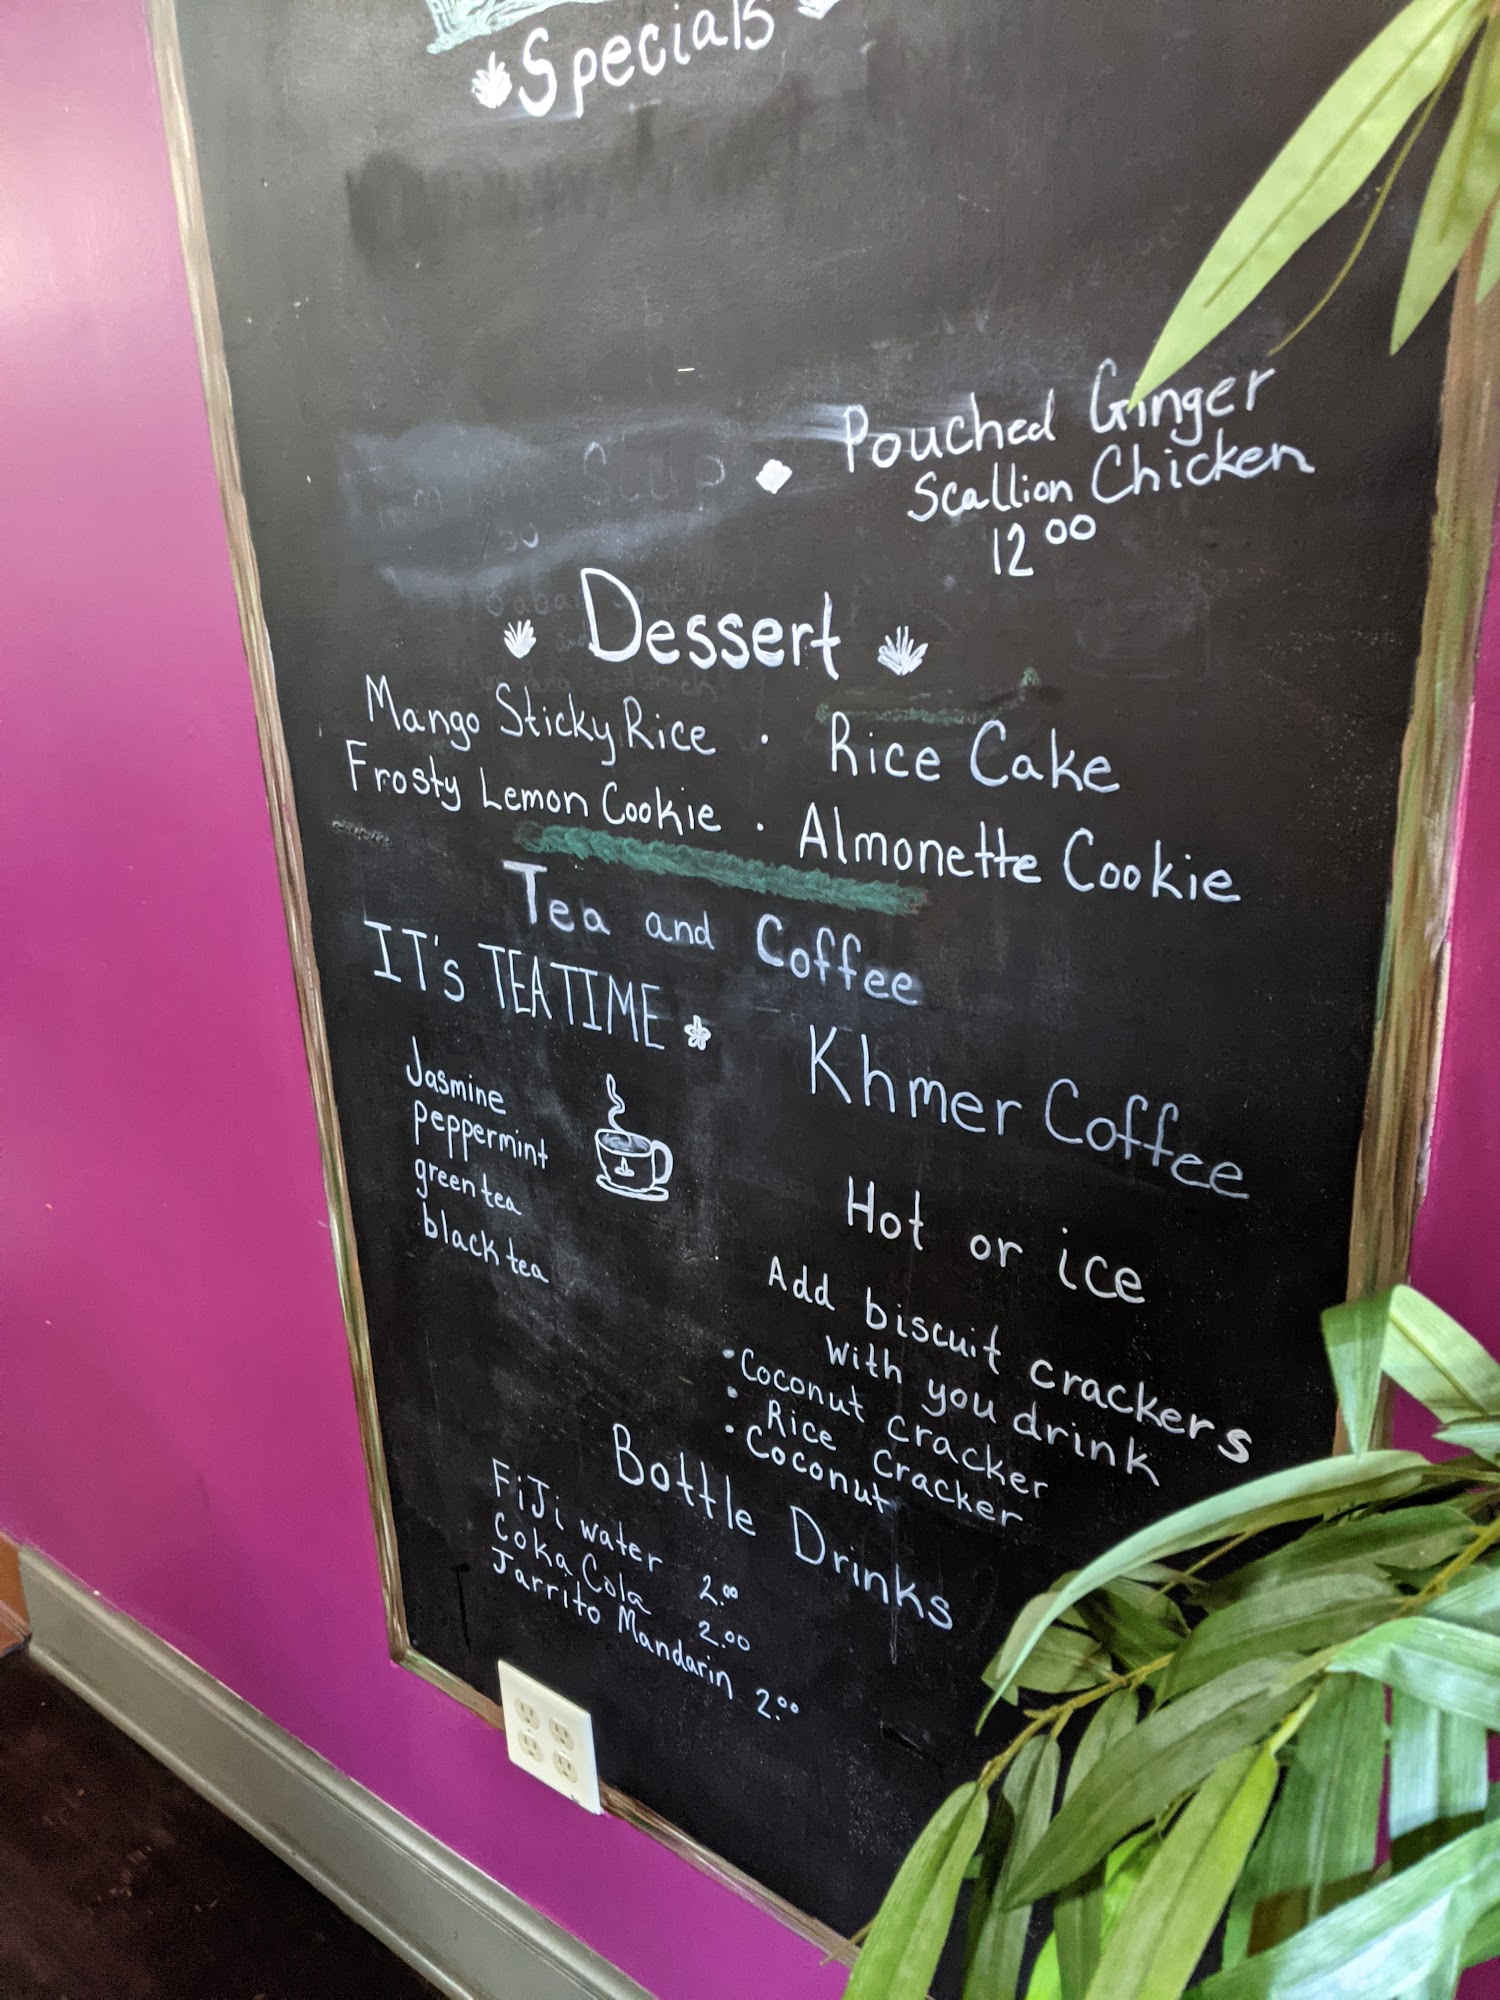 Specials
Pouched Ginger
Scallion Chicken
12.00
Dessert
Mango Sticky Rice · Rice Cake
Frosty Lemon Cookie · Almonette Cookie
Tea and Coffee
IT's TEA TIME
Jasmine
Peppermint
green tea
black tea
Khmer Coffee
Hot or ice
Add biscuit crackers
with you drink
• Coconut cracker
• Rice cracker
• Coconut
Bottle Drinks
FiJi water 2.00
Coka Cola 2.00
Jarrito Mandarin 2.00